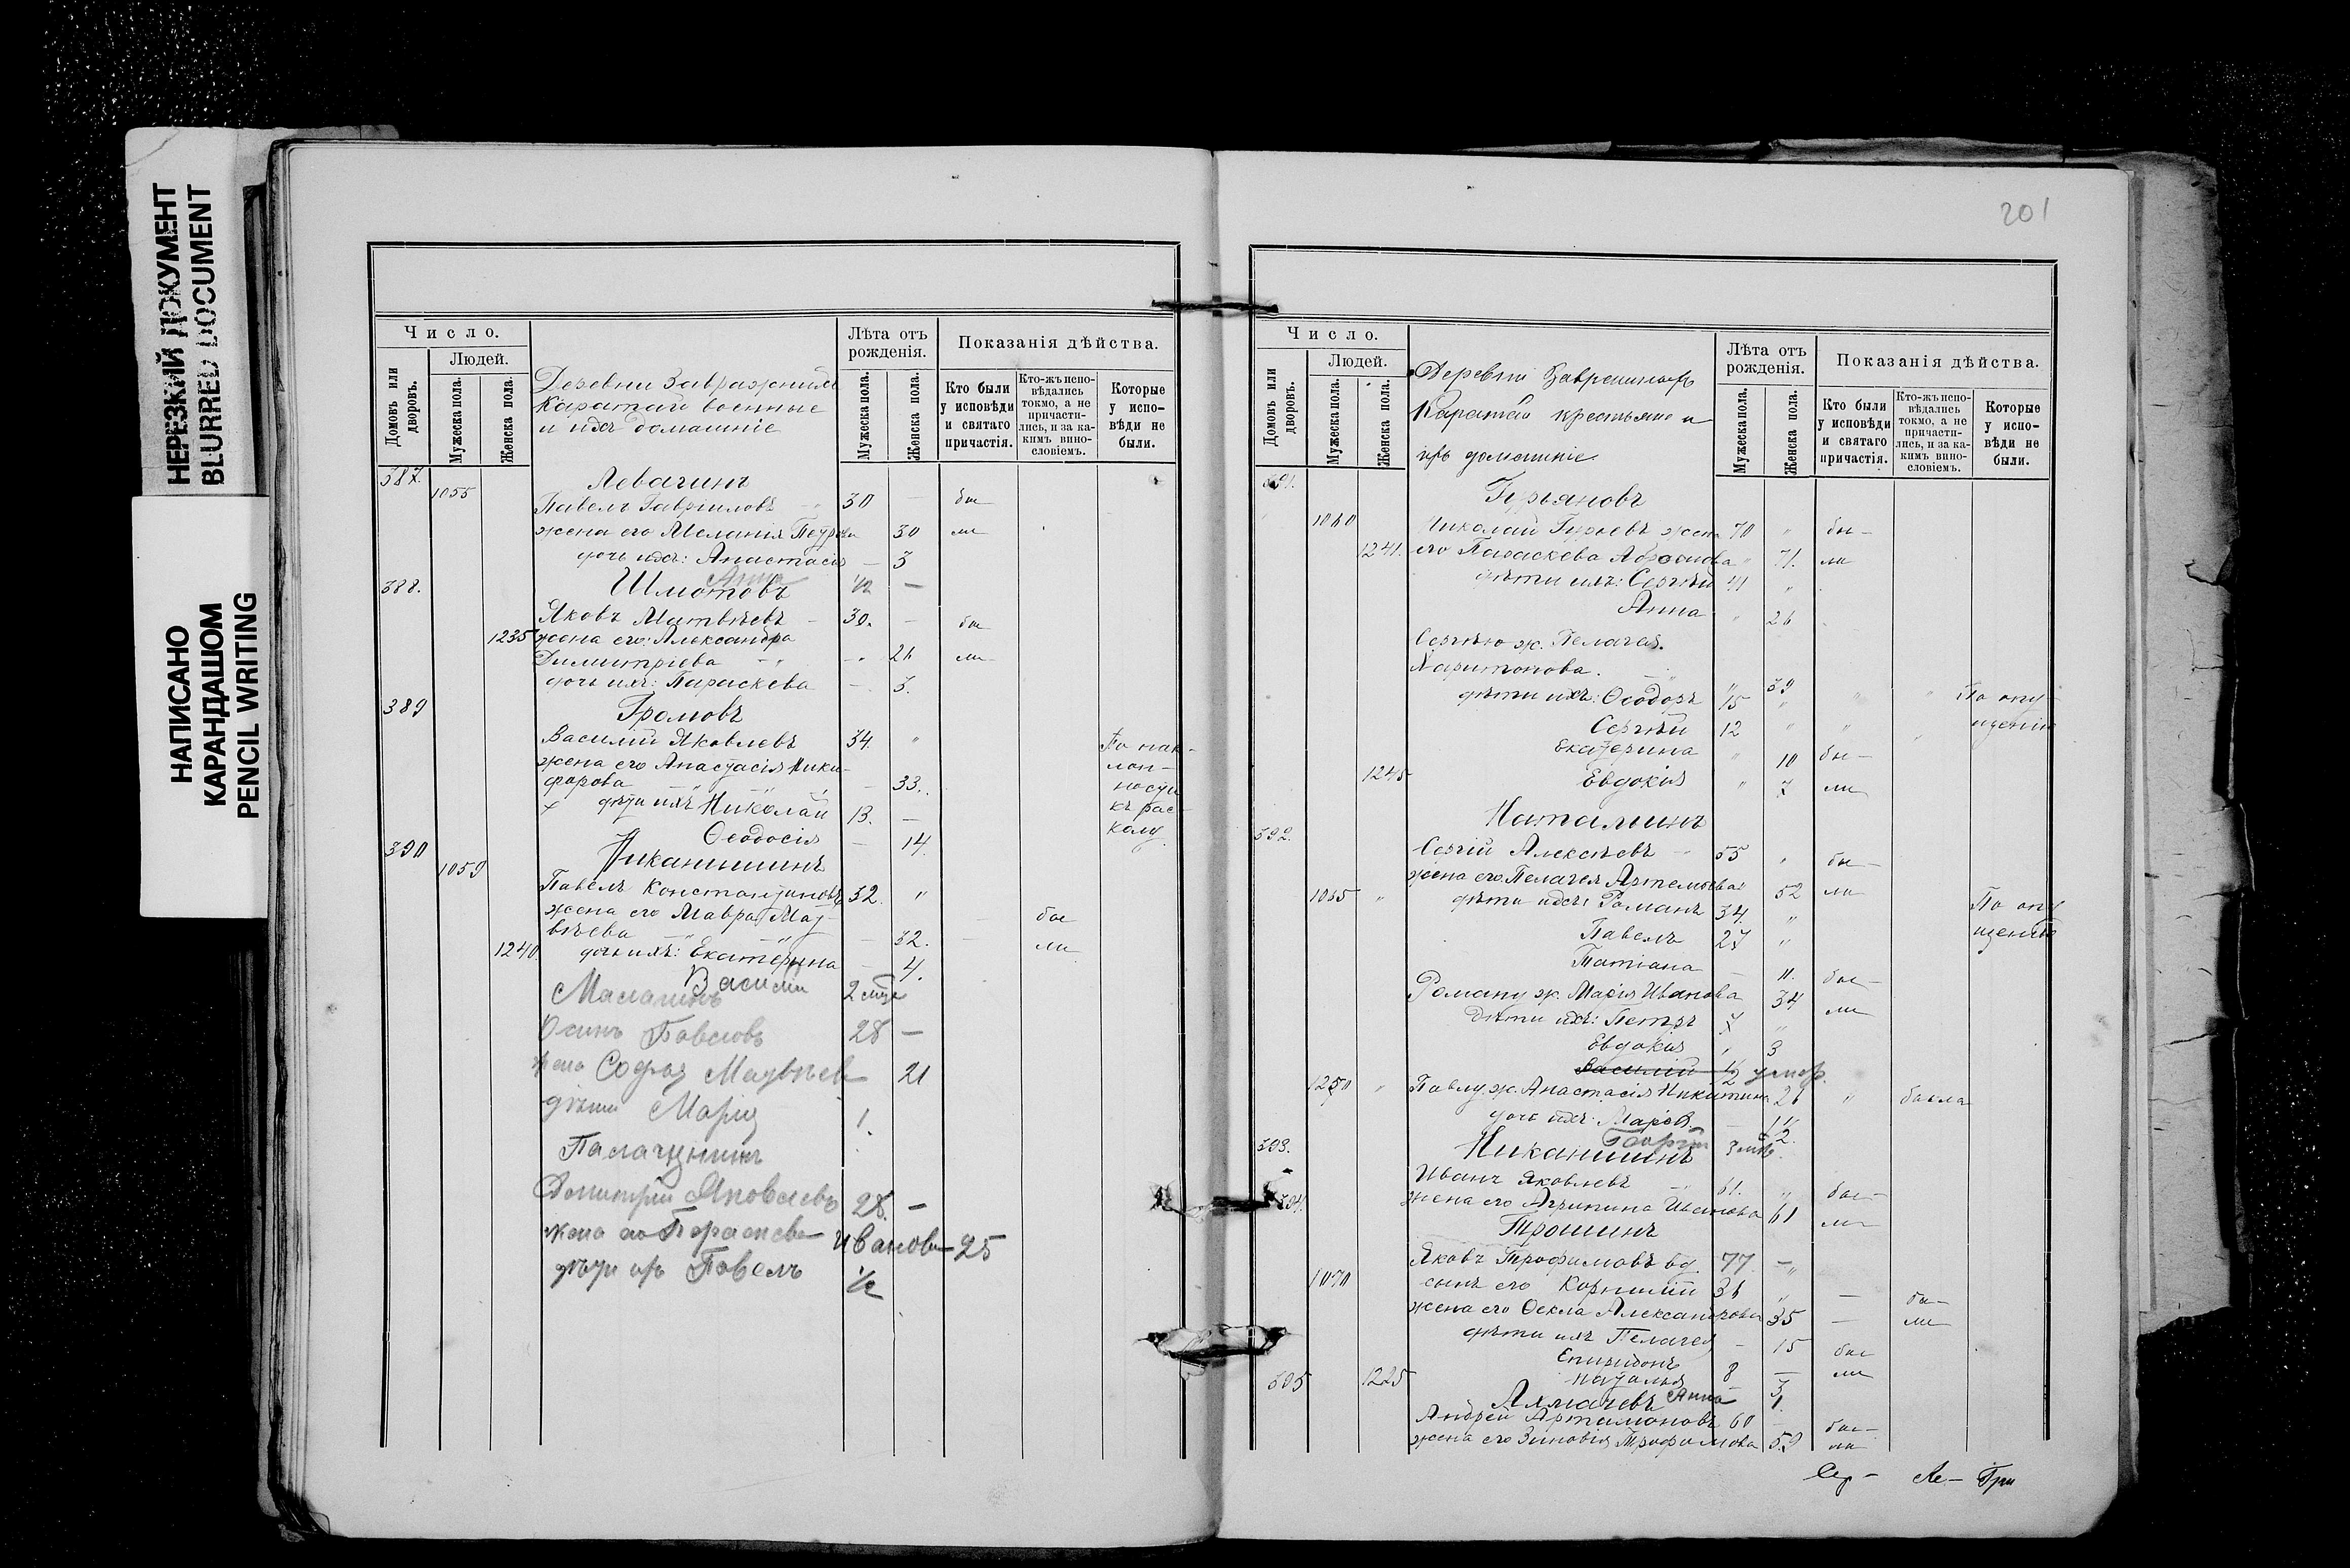 НЕРЕЗКИЙ ДОКУМЕНТ
BLURRED DOCUMENT
НАПИСАНО
КАРАНДАШОМ
PENCIL WRITING
Число.
Людей.
Домовъ или дворовъ.
Мужеска пола.
Женска пола.
Деревни
Каратай военные
и ихъ домашніе
Лѣта отъ рожденія.
Мужеска пола.
Женска пола.
Показанія дѣйства.
Кто были у исповѣди и святаго причастія.
Кто-жъ исповѣдались токмо, а не причастились, и за какимъ винословіемъ.
Которые у исповѣди не были.
387. Левагинъ
1055 Павелъ Гавріиловъ 30 — бы
жена его Меланія Петрова 30 ли
дочь ихъ: Анастасія — 3
Анна
388. Шмотовъ 1/2 —
Яковъ Матвѣевъ — 30. — бы
1235 жена его: Александра
Димитріева — 26 ли
дочь ихъ: Параскева — 3.
389 Громовъ
Василій Яковлевъ 34. " По нак-
жена его Анастасія Ники- лон-
форова — 33. ности
+ дѣти ихъ Николай 13. — къ рас-
Ѳеодосія — 14. колу
390 Никаншинъ
1059 Павелъ Константиновъ 32. "
жена его Мавра Мат- бы
вѣева — 32. — ли
1240 дочь ихъ: Екатерина — 4.
Василій
2
28 —
жена Софія 21
дѣти Марія 1.
Димитрій Яковлевъ 28. —
жена его Параскева Иванова 25
дѣти ихъ Павелъ 1/2
201
Число.
Людей.
Домовъ или дворовъ.
Мужеска пола.
Женска пола.
Деревни
Каратай крестьяне и
ихъ домашніе
Лѣта отъ рожденія.
Мужеска пола.
Женска пола.
Показанія дѣйства.
Кто были у исповѣди и святаго причастія.
Кто-жъ исповѣдались токмо, а не причастились, и за какимъ винословіемъ.
Которые у исповѣди не были.
391. Гурьяновъ
1060 Николай Гурьевъ жена 70 " бы—
1241. его Параскева 71. ли
дѣти ихъ: Сергѣй 41 "
Анна " 26
Сергѣю ж. Пелагея
Харитонова " 39
дѣти ихъ: Ѳеодоръ 15 " " " По опу-
Сергѣй 12 " " " щенію
Екатерина " 10 бы—
1245 Евдокія " 7 ли
392. Наталинъ
Сергій Алексѣевъ 55 " бы—
жена его Пелагея Артемьева 52 ли
1065 " дѣти ихъ: Романъ 34. " По опу
Павелъ 27 " щенію
Татіана — 11. бы—
Роману ж. Марія Иванова 34 ли
Дѣти ихъ: Петръ "
Евдокія " 3
Василій 1/2 умер.
1250 " Павлу ж. Анастасія Никитина 26 " была
дочь ихъ: Марія. — 1 1/2.
393. Никаншинъ
Иванъ Яковлевъ 61. " бы—
394. жена его Агрипина Иванова 61 ли
Трошинъ
Яковъ Трофимовъ вд. 77. — "
1070 сынъ его Корнилій 36 " — бы—
жена его Ѳекла Александрова 35 — ли
дѣти ихъ Пелагея — 15 бы
Спиридонъ 8 — ли
395 1225 Наталья 3
Анна 1.
Андрей Артамоновъ 60 — бы—
жена его Зиновія Трофимова 59 ли